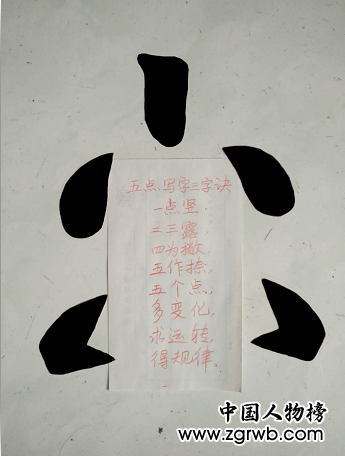 五点写字三字诀
一点竖,
二三露,
四为撇,
五作捺,
五个点,
多变化,
求运转,
得规律,
中国人物榜
www.zgrwb.com